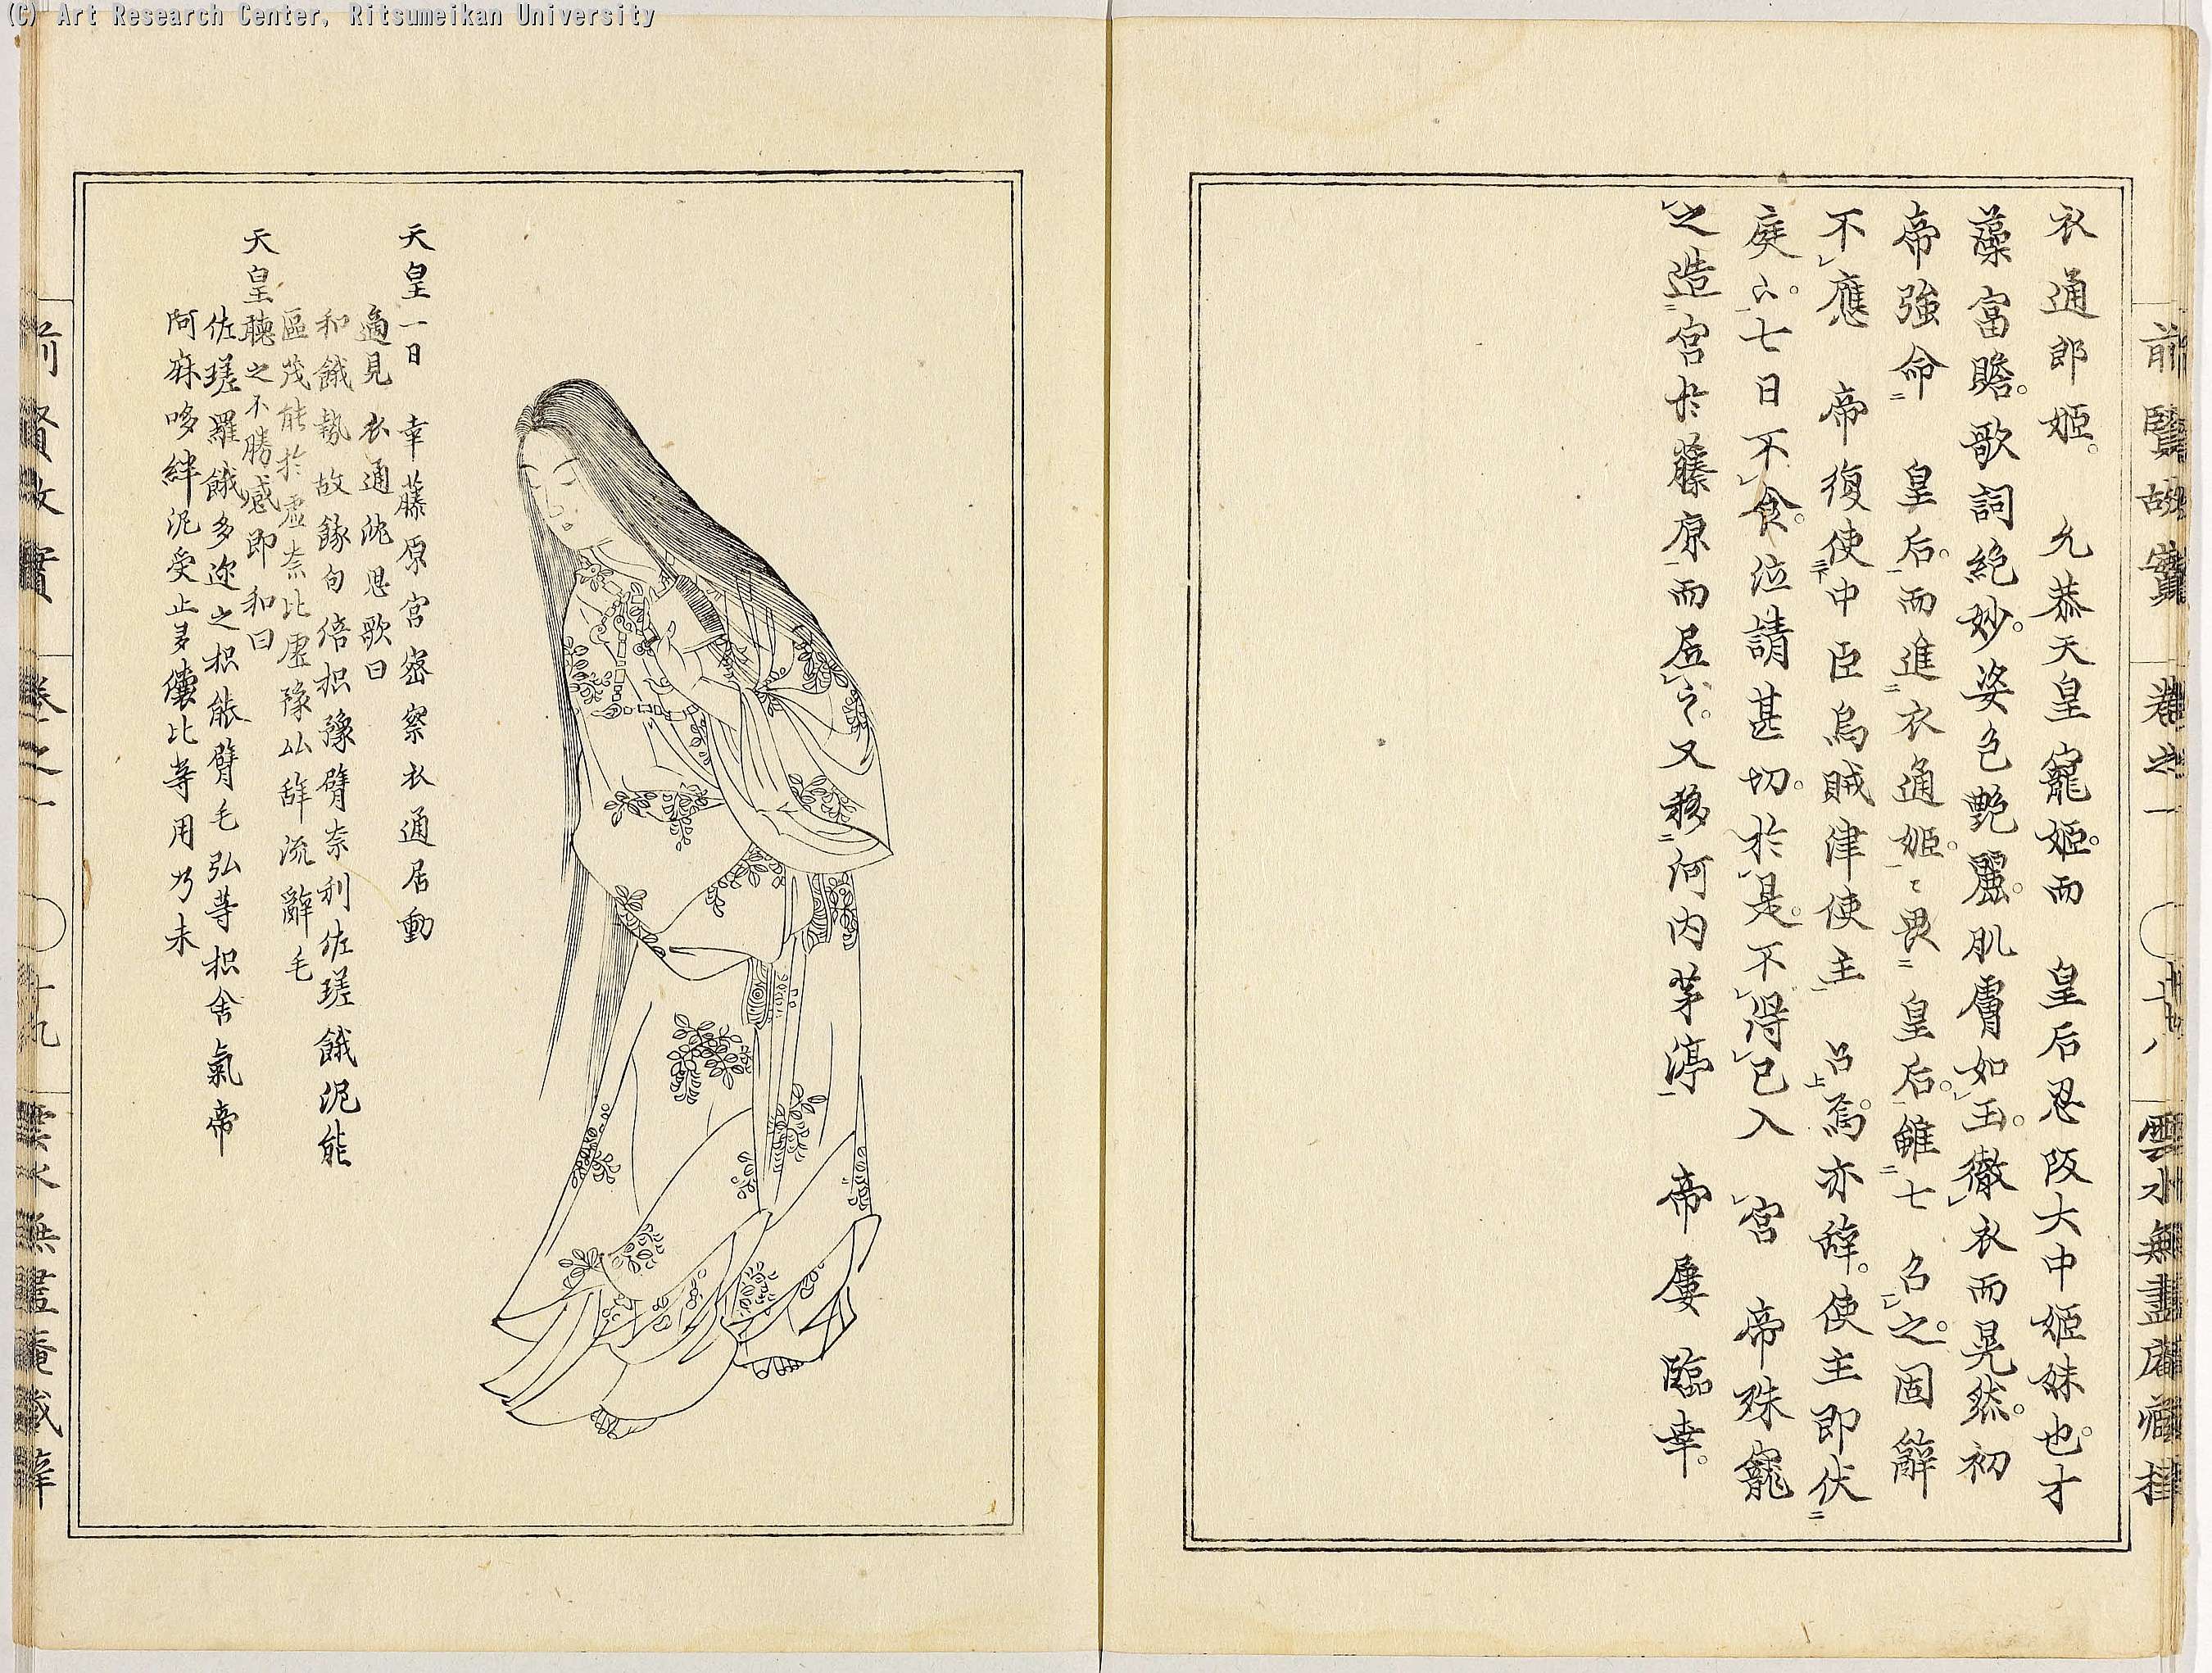 (C) Art Research Center, Ritsumeikan University
前賢故實 卷之一 十八 雲水無盡庵藏梓
衣通郎姫。 允恭天皇寵姫。而 皇后忍阪大中姫妹也。才
藻富贍。歌詞絶妙。姿色艶麗。肌膚如玉。徹衣而晃然。初
帝強命 皇后。而進衣通姫。〻畏 皇后。雖七 召之。固辭
不應 帝復使中臣烏賊津使主 召焉。亦辞。使主即伏
庭六。七日不食。泣請甚切。於是。不得已入 宮 帝殊寵
之造宮於藤原而居之。又移河内茅渟 帝屢臨幸。
天皇一日 幸藤原宮密察衣通居動
適見衣通沈思歌曰
和餓勢故餓勾倍枳豫臂奈利佐瑳餓泥能
區茂能於虚奈比虚豫比辞流辭毛
天皇聽之不勝感即和曰
佐瑳羅餓多邇之枳能臂毛弘等枳舍氣帝
阿麻哆絆泥受止多儾比等用乃未
前賢故實 卷之一 十九 雲水無盡庵藏梓